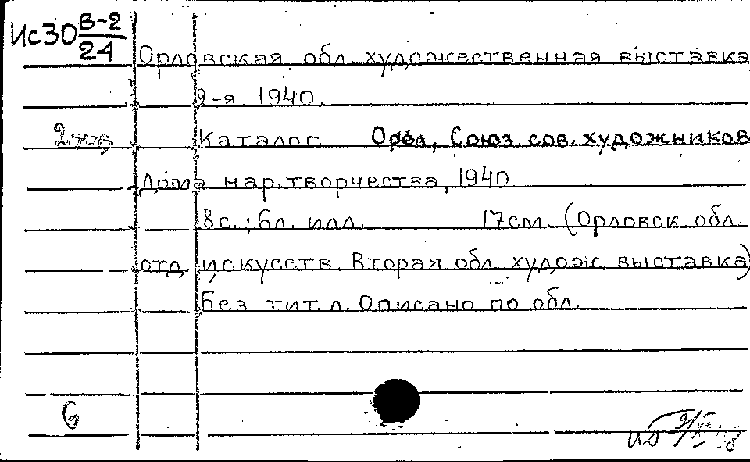 Ис30 В-2/24
Орловская обл. художественная выставка
2-я. 1940.
2 экз. Каталог. Орел, Союз сов. художников
Дома нар. творчества, 1940
8с.; 6л. илл. 17см (Орловск. обл.
отд. искусств. Вторая обл. худож. выставка)
Без тит. л. Описано по обл.
6